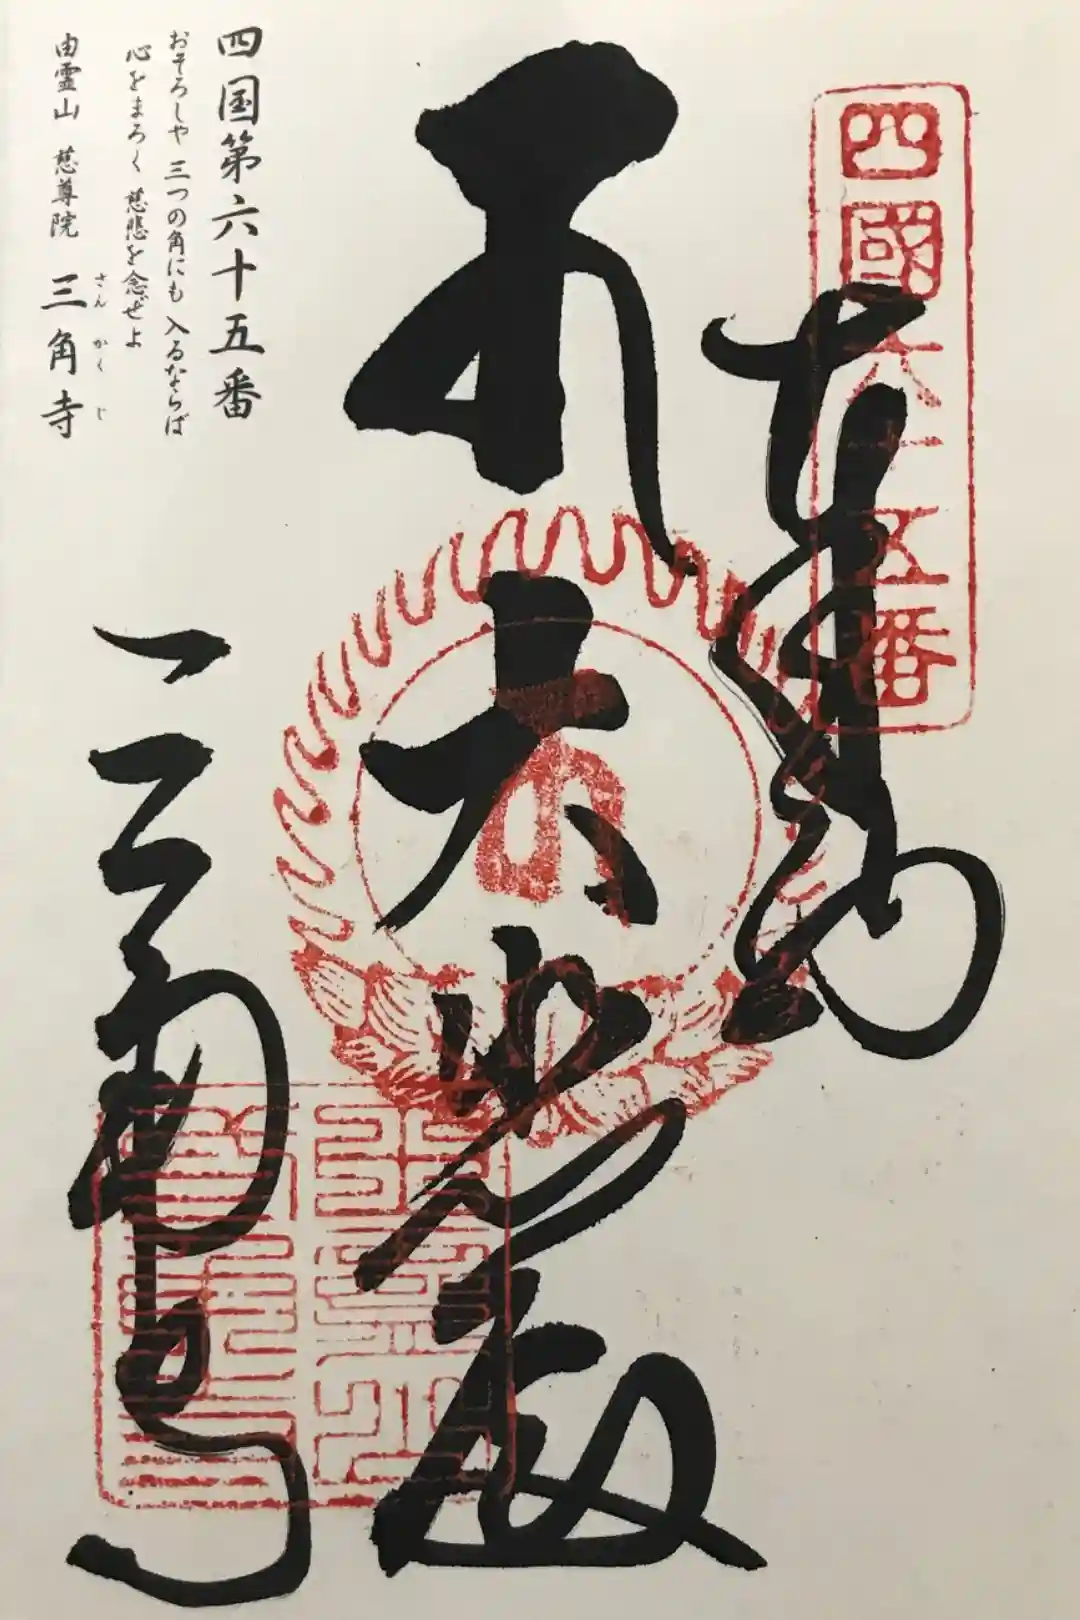 四國六十五番
奉納
本大悲殿
四国第六十五番
おそろしや 三つの角にも 入るならば
心をまろく 慈悲を念ぜよ
由霊山 慈尊院 三角寺
さんかくじ
三角寺